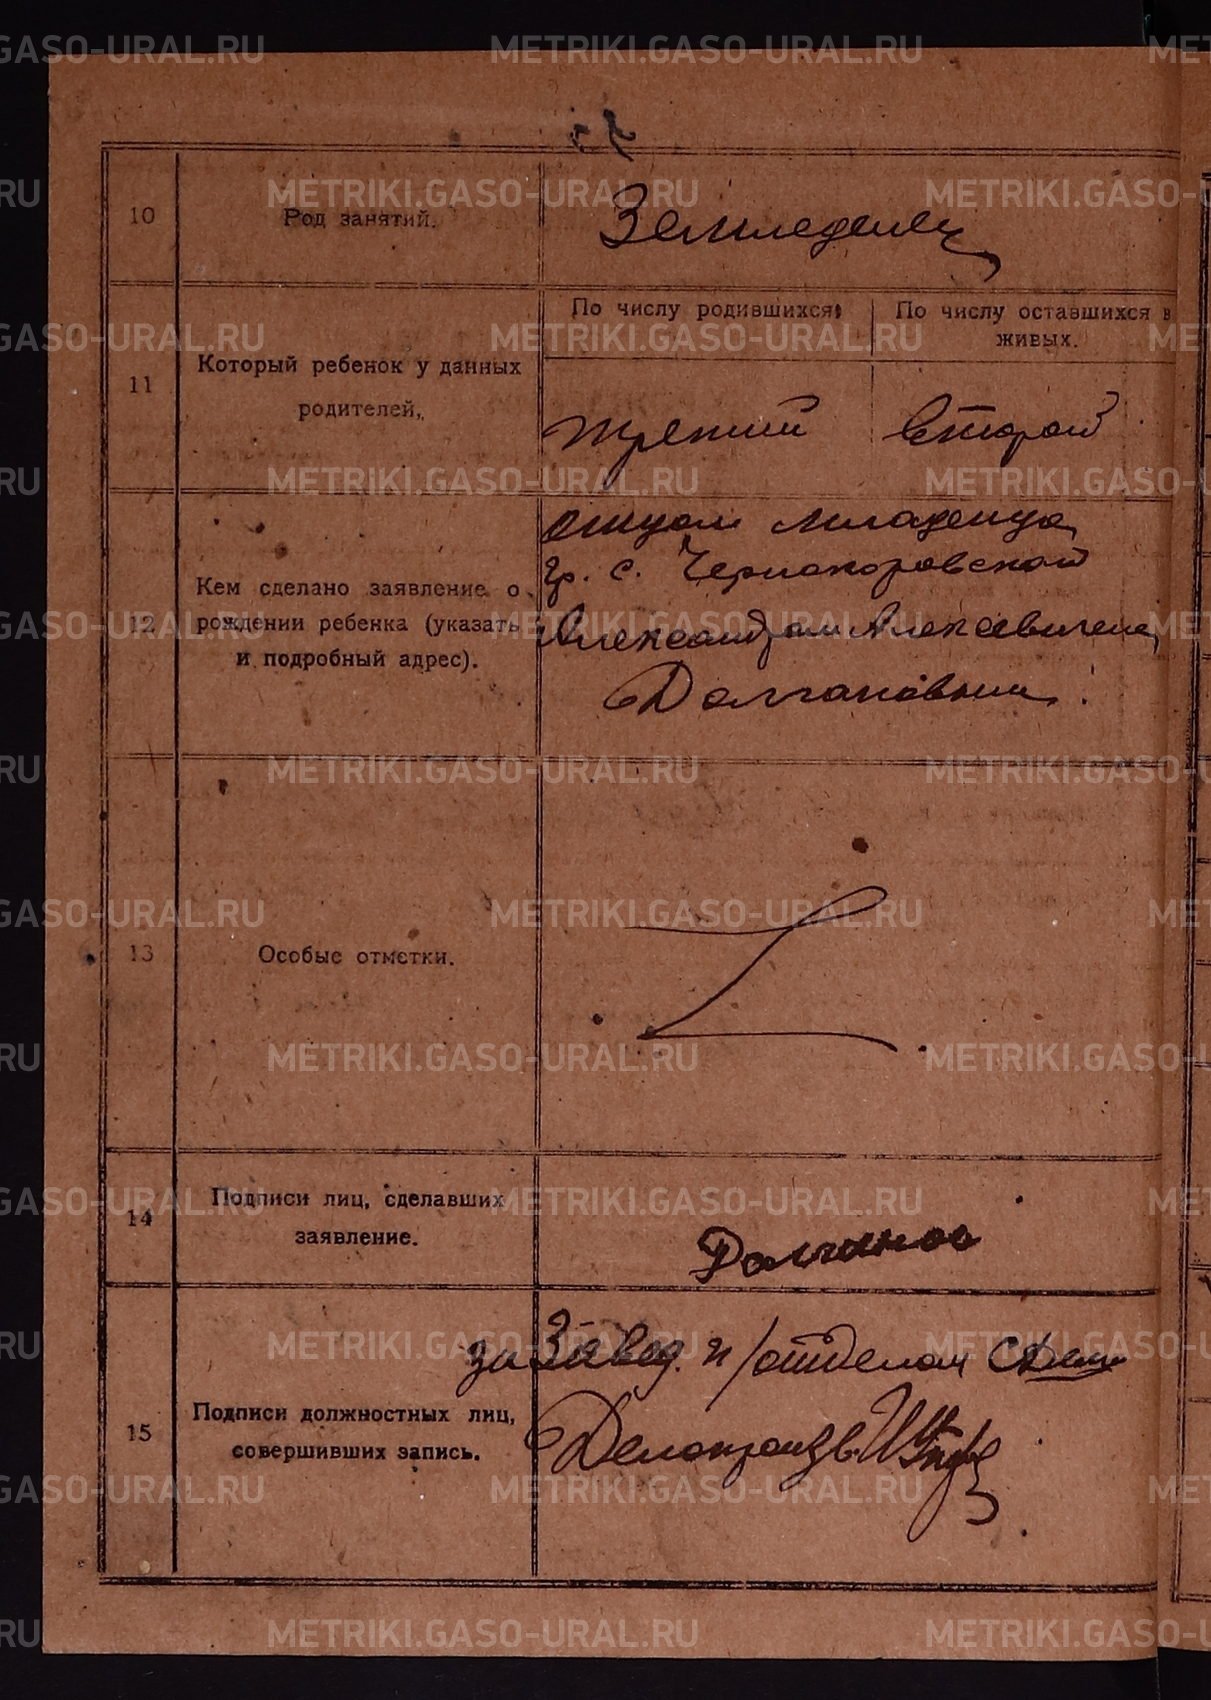 10
Род занятий.
Земледелец
11
Который ребенок у данных
родителей.
По числу родившихся
По числу оставшихся в
живых.
третий
второй
12
Кем сделано заявление о
рождении ребенка (указать
и подробный адрес).
отцом младенца
гр. с. Чернокоровской
Александром Алексеевичем
Долгановым.
13
Особые отметки.
14
Подписи лиц, сделавших
заявление.
Долганов
15
Подписи должностных лиц,
совершивших запись.
за Завед. п/отделом
Делопроизв.
METRIKI.GASO-URAL.RU